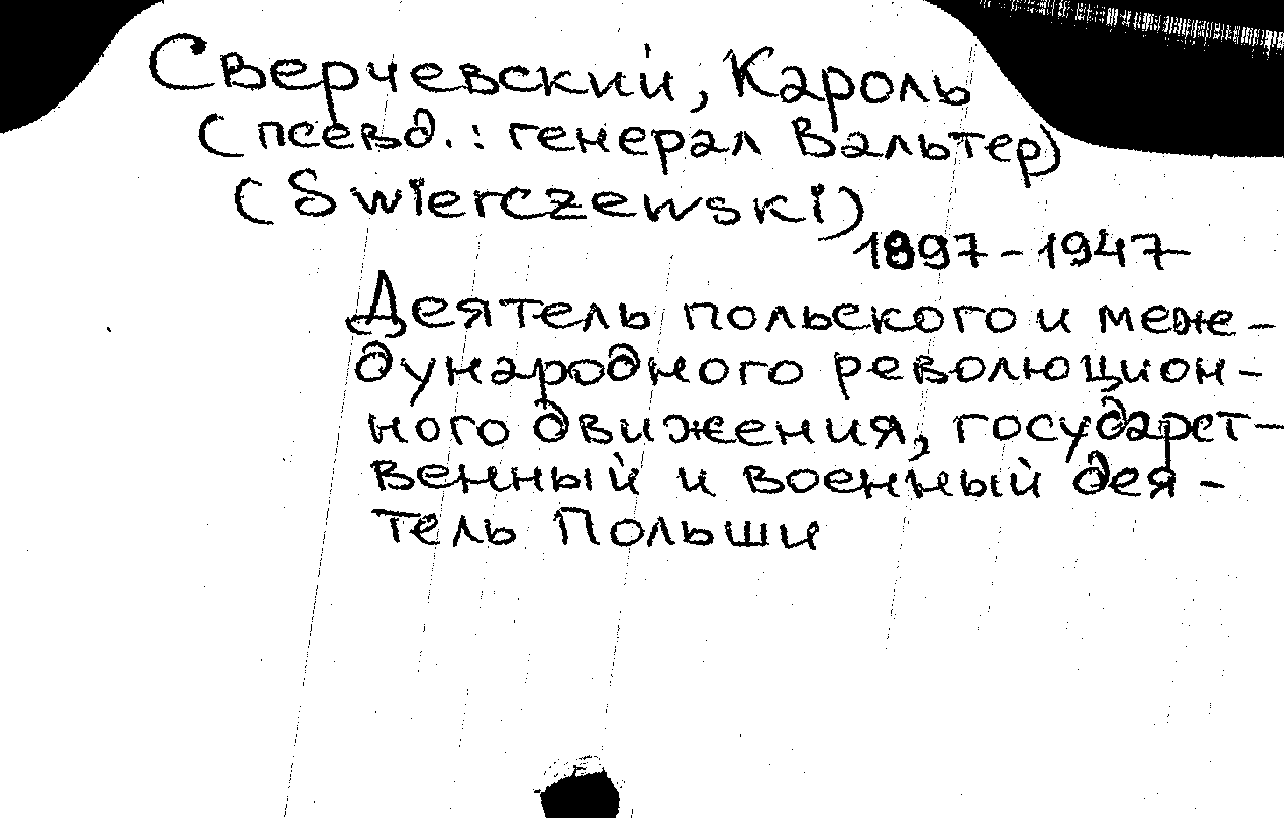 Сверчевский, Кароль
(псевд.: генерал Вальтер)
(Swierczewski)
1897-1947
Деятель польского и меже-
дународного революцион-
ного движения, государст-
венный и военный дея-
тель Польши